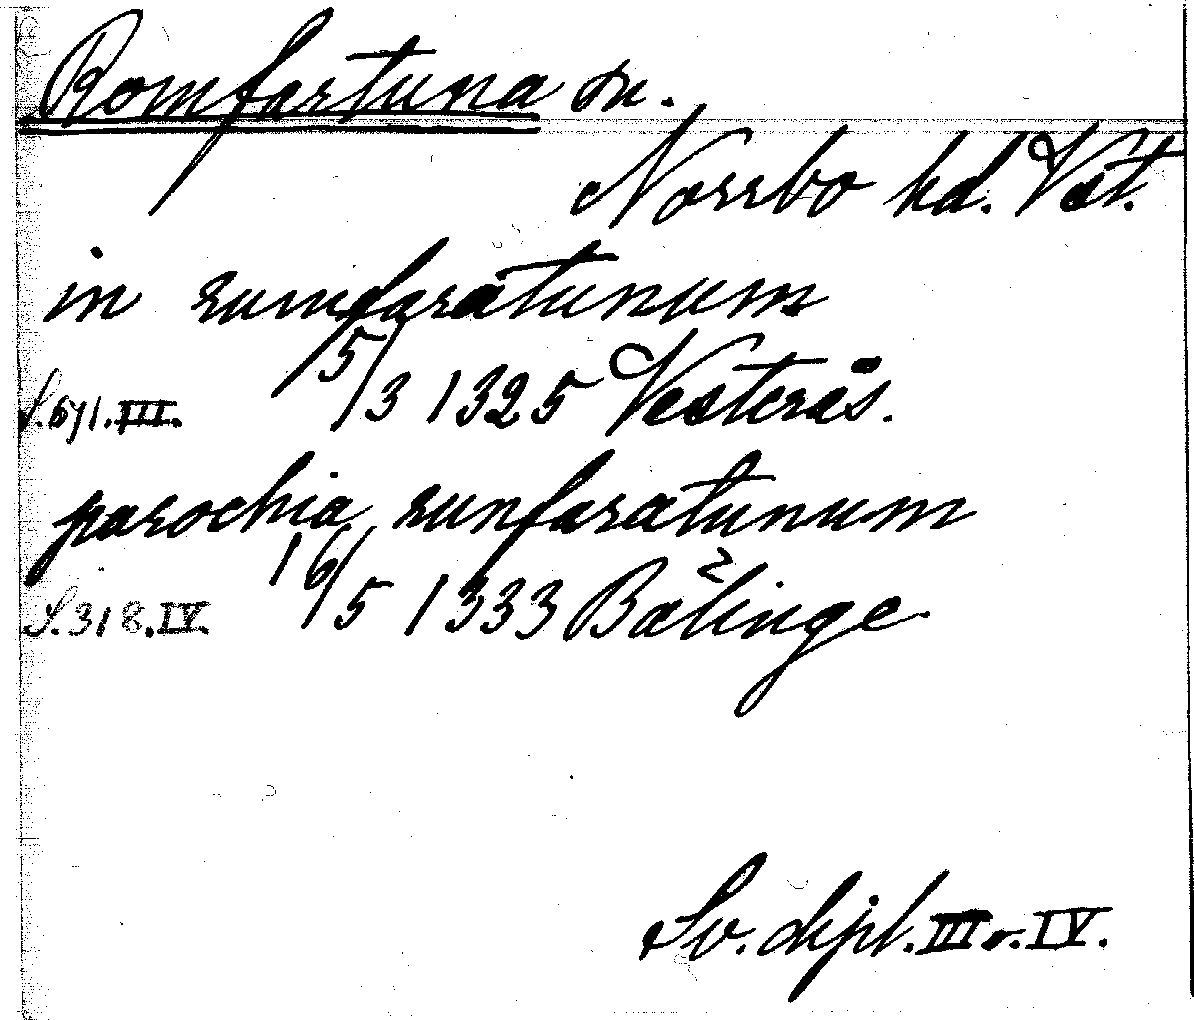 Romfartuna sn.
Norrbo hd. Vst.
in rumfaratunum
S. 671. III. 5/3 1325 Västerås.
parochia runfaratunum
S. 318. IV. 16/5 1333 Bälinge
Sv. dipl. III o. IV.